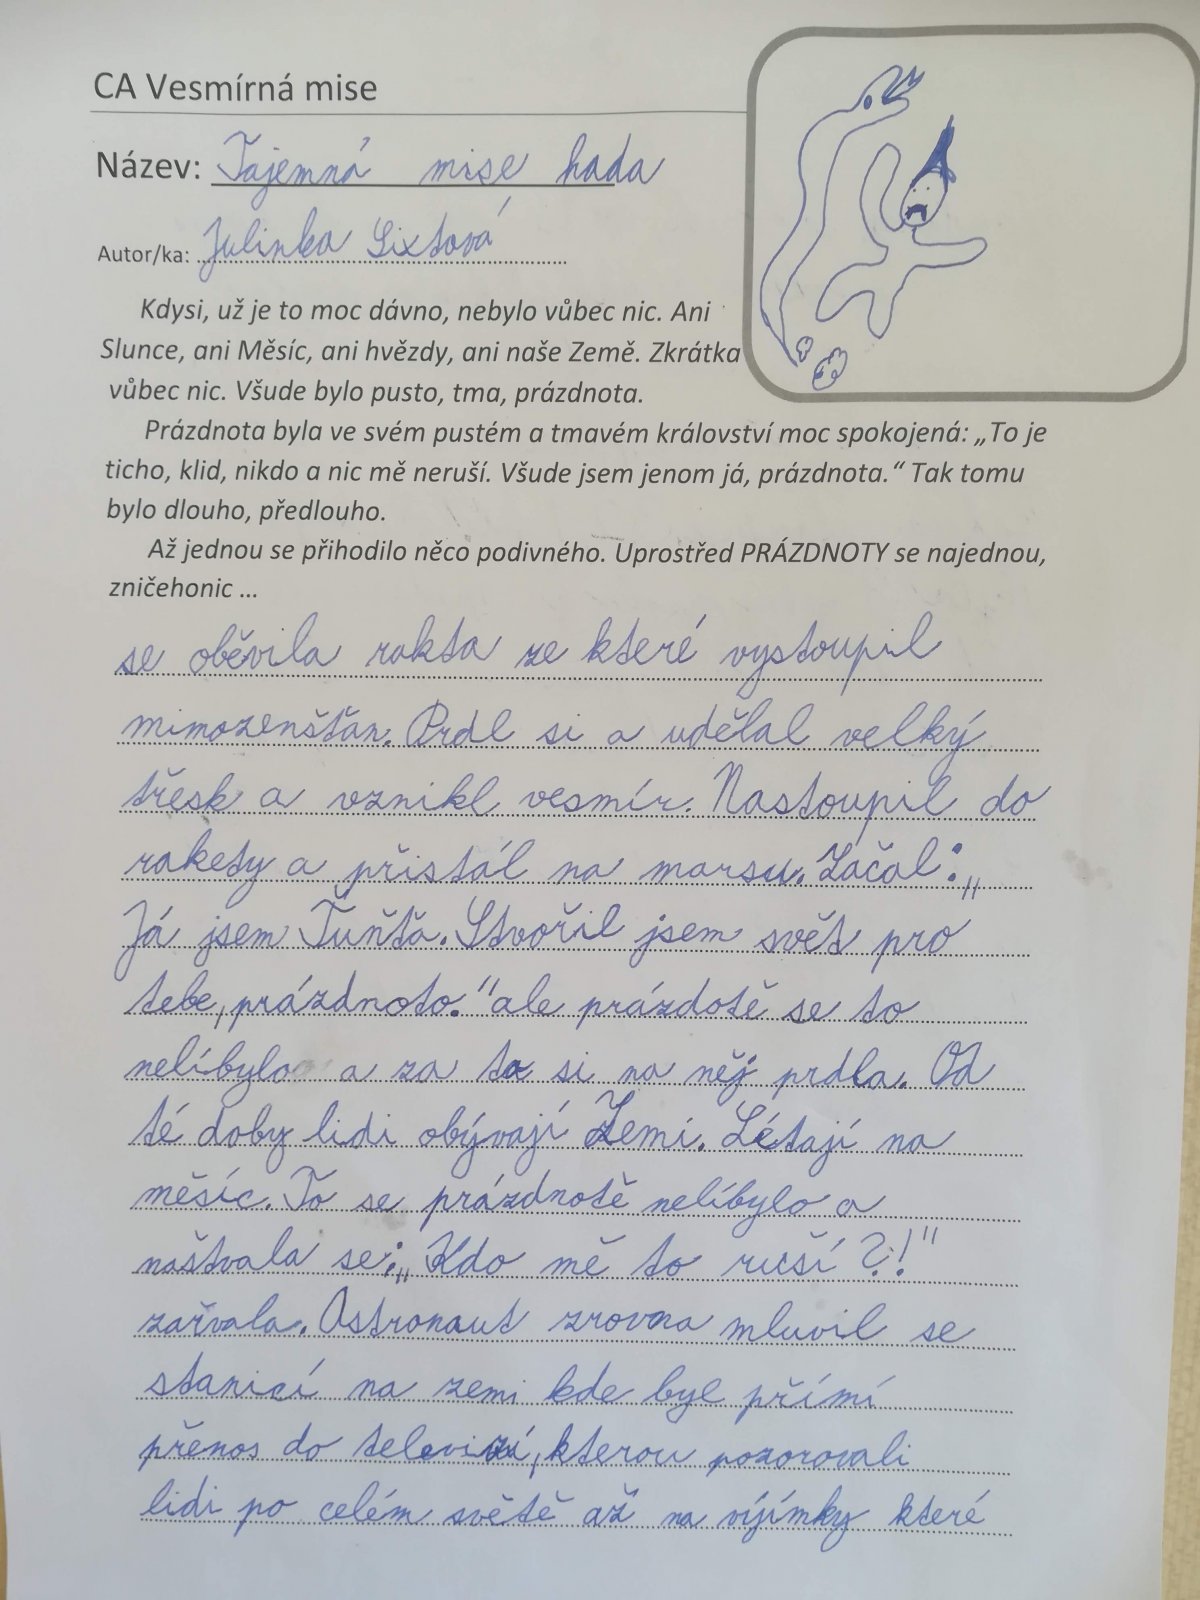 CA Vesmírná mise
Název: Tajemná mise hada
Autor/ka: Julinka Sixtová
Kdysi, už je to moc dávno, nebylo vůbec nic. Ani
Slunce, ani Měsíc, ani hvězdy, ani naše Země. Zkrátka
vůbec nic. Všude bylo pusto, tma, prázdnota.
Prázdnota byla ve svém pustém a tmavém království moc spokojená: „To je
ticho, klid, nikdo a nic mě neruší. Všude jsem jenom já, prázdnota.“ Tak tomu
bylo dlouho, předlouho.
Až jednou se přihodilo něco podivného. Uprostřed PRÁZDNOTY se najednou,
zničehonic ...
se oběvila rakta ze které vystoupil
mimozenšťan. Prdl si a udělal velký
třesk a vznikl vesmír. Nastoupil do
rakety a přistál na marsu. Začal: „
Já jsem Ťuňťa. Stvořil jsem svět pro
tebe, prázdnoto." ale prázdotě se to
nelíbylo a za to si na něj prdla. Od
té doby lidi obývají Zemi. Létají na
měsíc. To se prázdnotě nelíbylo a
naštvala se: „Kdo mě to ruší ?!"
zařvala. Astronaut zrovna mluvil se
stanicí na zemi kde byl přímí
přenos do televizí, kterou pozorovali
lidi po celém světě až na víjímky které